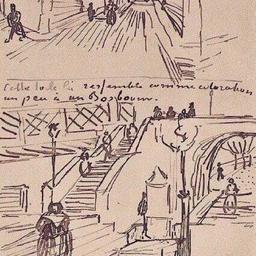 cette toile là ressemble comme coloration
un peu à un Bosboom.